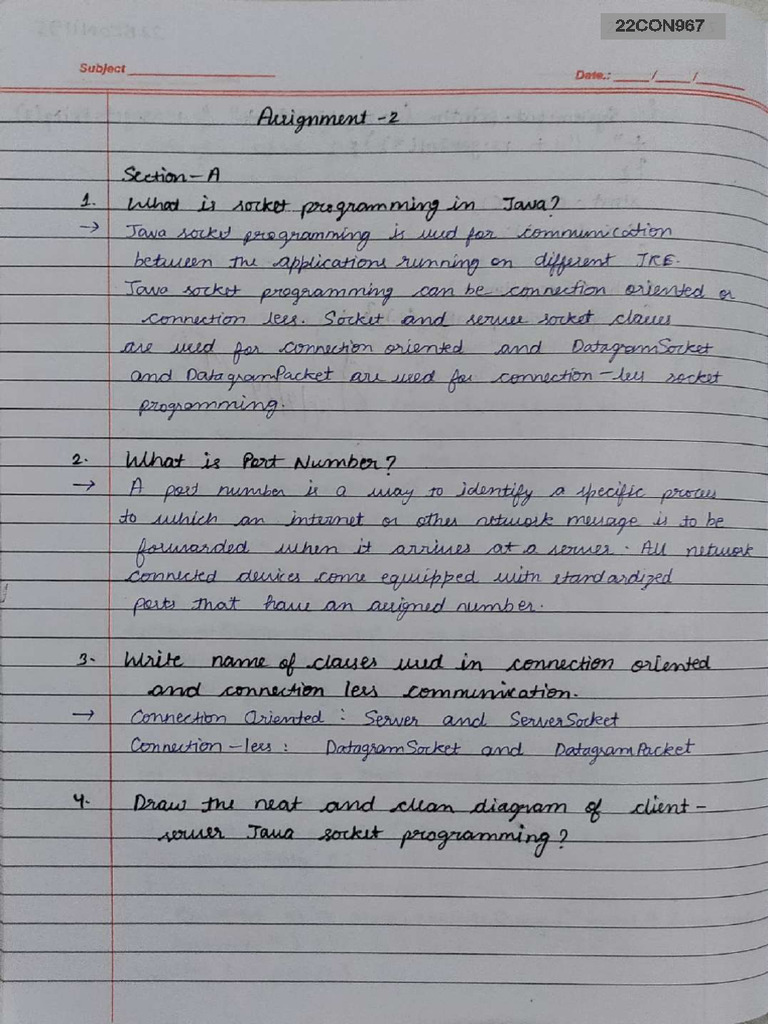 22CON967
Subject
Date.: / /
Assignment - 2
Section - A
1. What is socket programming in Java?
→ Java socket programming is used for communication
between the applications running on different JRE.
Java socket programming can be connection oriented or
connection less. Socket and server socket classes
are used for connection oriented and DatagramSocket
and DatagramPacket are used for connection-less socket
programming.
2. What is Port Number?
→ A port number is a way to identify a specific process
to which an internet or other network message is to be
forwarded when it arrives at a server. All network
connected devices come equipped with standardized
ports that have an assigned number.
3. Write name of classes used in connection oriented
and connection less communication.
→ Connection Oriented : Server and ServerSocket
Connection-less : DatagramSocket and DatagramPacket
4. Draw the neat and clean diagram of client-
server Java socket programming?